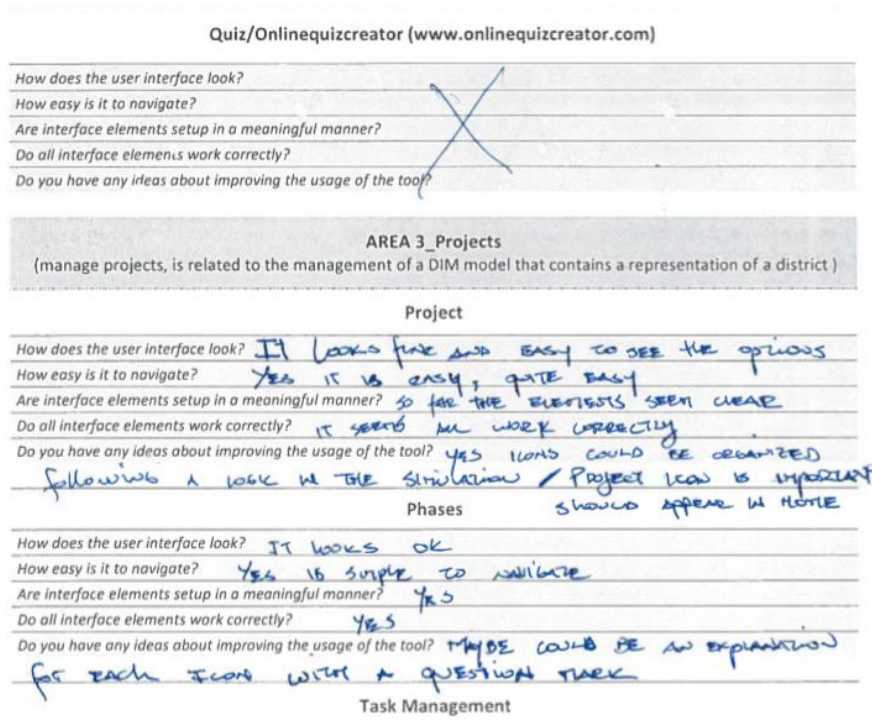 Quiz/Onlinequizcreator (www.onlinequizcreator.com)
How does the user interface look?
How easy is it to navigate?
Are interface elements setup in a meaningful manner?
Do all interface elements work correctly?
Do you have any ideas about improving the usage of the tool?
AREA 3_Projects
(manage projects, is related to the management of a DIM model that contains a representation of a district )
Project
How does the user interface look? IT LOOKS FINE AND EASY TO SEE THE OPTIONS
How easy is it to navigate? YES IT IS EASY, QUITE EASY
Are interface elements setup in a meaningful manner? SO FAR THE ELEMENTS SEEM CLEAR
Do all interface elements work correctly? IT SEEMS ALL WORK CORRECTLY
Do you have any ideas about improving the usage of the tool? YES ICONS COULD BE ORGANIZED
following A LOGIC IN THE SIMULATION / PROJECT ICON IS IMPORTANT
SHOULD APPEAR IN HOME
Phases
How does the user interface look? IT LOOKS OK
How easy is it to navigate? YES IS SIMPLE TO NAVIGATE
Are interface elements setup in a meaningful manner? YES
Do all interface elements work correctly? YES
Do you have any ideas about improving the usage of the tool? MAYBE COULD BE AN EXPLANATION
for EACH ICON WITH A QUESTION MARK
Task Management